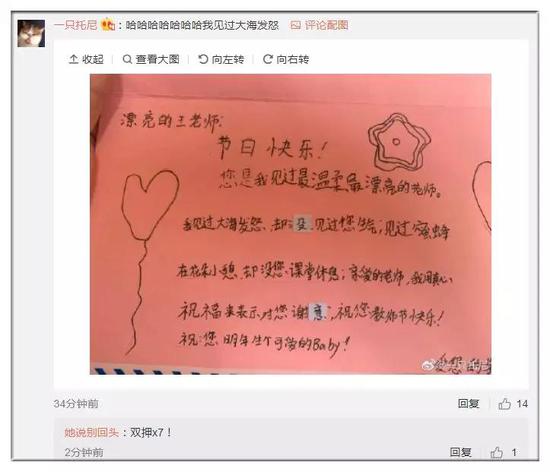 一只托尼:哈哈哈哈哈哈哈我见过大海发怒 评论配图
收起 查看大图 向左转 向右转
漂亮的王老师:
节日快乐!
您是我见过最温柔最漂亮的老师。
我见过大海发怒,却没见过您生气;见过蜜蜂
在花朵小憩,却没您课堂休息;亲爱的老师,我用真心
祝福来表示对您谢意,祝您教师节快乐!
祝您明年生个可爱的Baby!
爱您的学
34分钟前 回复 14
她说别回头:双押x7!
2分钟前 回复 1